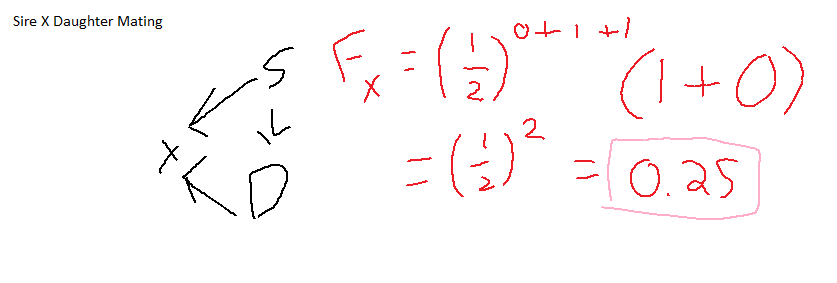 Sire X Daughter Mating
S
X
D
Fx = (1/2)^0+1+1 (1+0)
= (1/2)^2 = 0.25